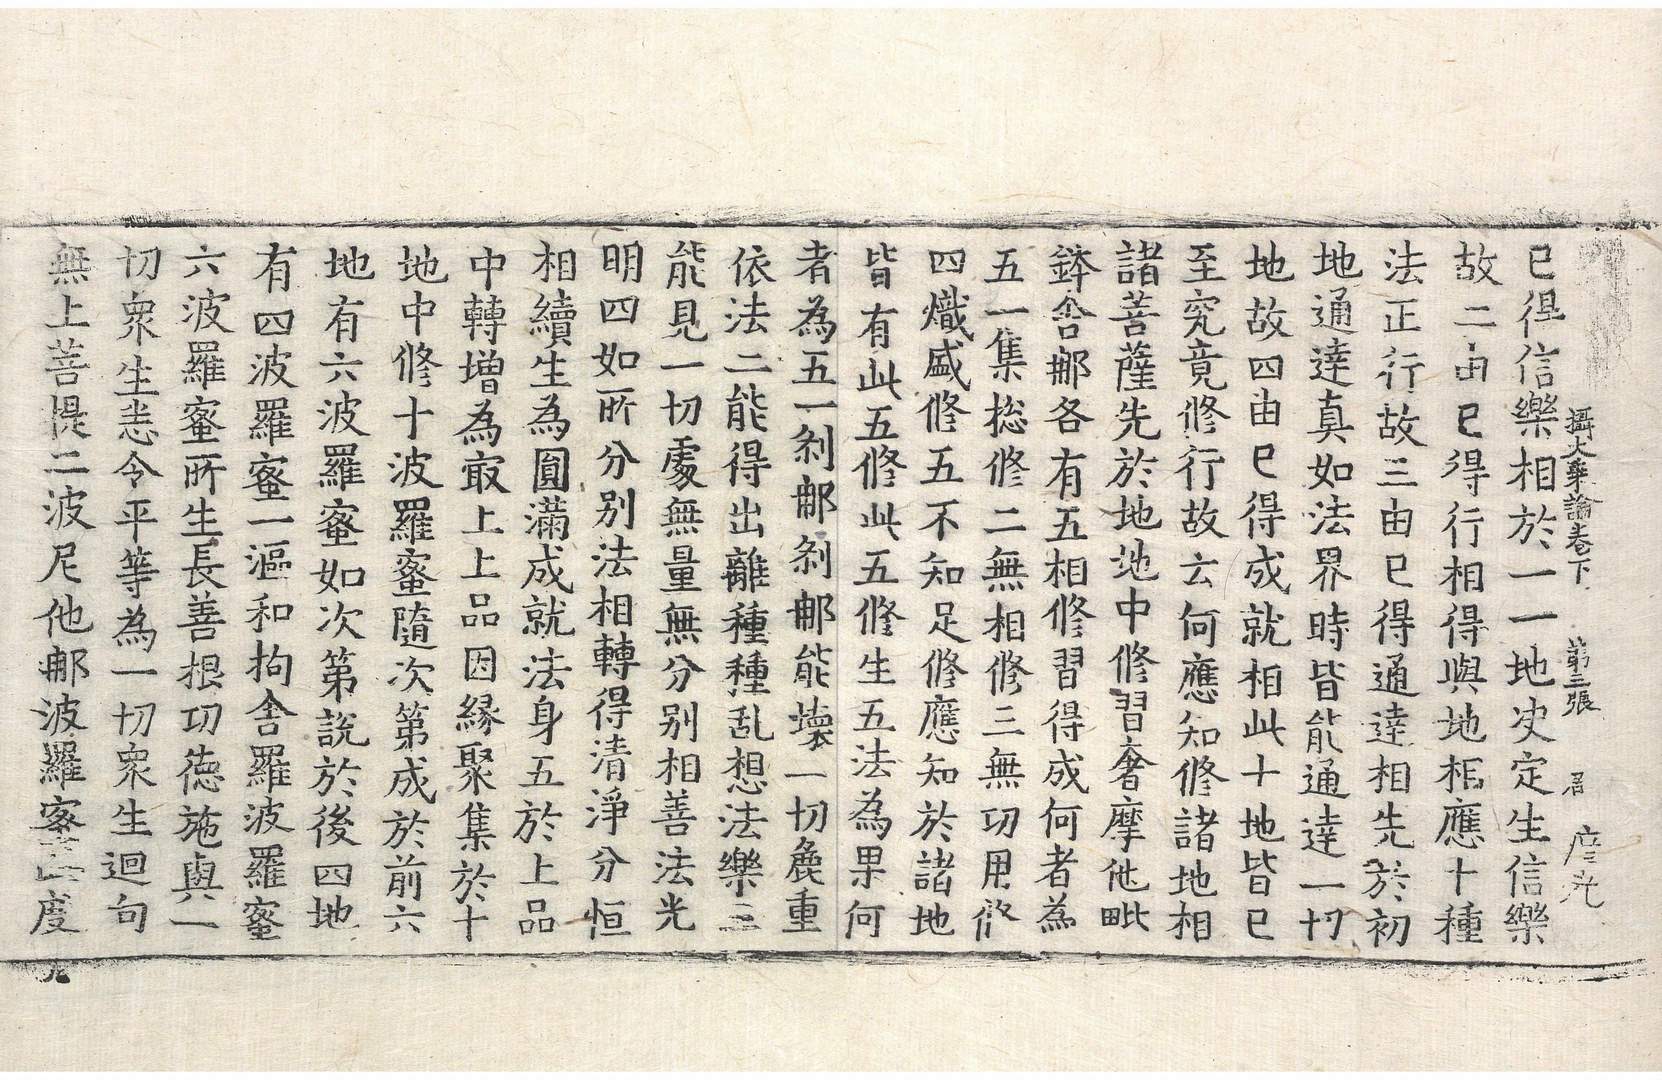 攝大乘論卷下　第二張
已得信樂相於一一地决定生信樂
故二由已得行相得與地相應十種
法正行故三由已得通達相先於初
地通達真如法界時皆能通達一切
地故四由已得成就相此十地皆已
至究竟修行故云何應知修諸地相
諸菩薩先於地地中修習奢摩他毗
鉢舍那各有五相修習得成何者為
五一集揔修二無相修三無功用修
四熾盛修五不知足修應知於諸地
皆有此五修此五修生五法為果何
者為五一剎那剎那能壞一切麁重
依法二能得出離種種乱想法樂三
能見一切處無量無分別相善法光
明四如所分別法相轉得清淨分恒
相續生為圓滿成就法身五於上品
中轉增為㝡上上品因緣聚集於十
地中修十波羅蜜隨次第成於前六
地有六波羅蜜如次第說於後四地
有四波羅蜜一漚和拘舍羅波羅蜜
六波羅蜜所生長善根功德施與一
切衆生悉令平等為一切衆生迴向
無上菩提二波尼他那波羅蜜此度